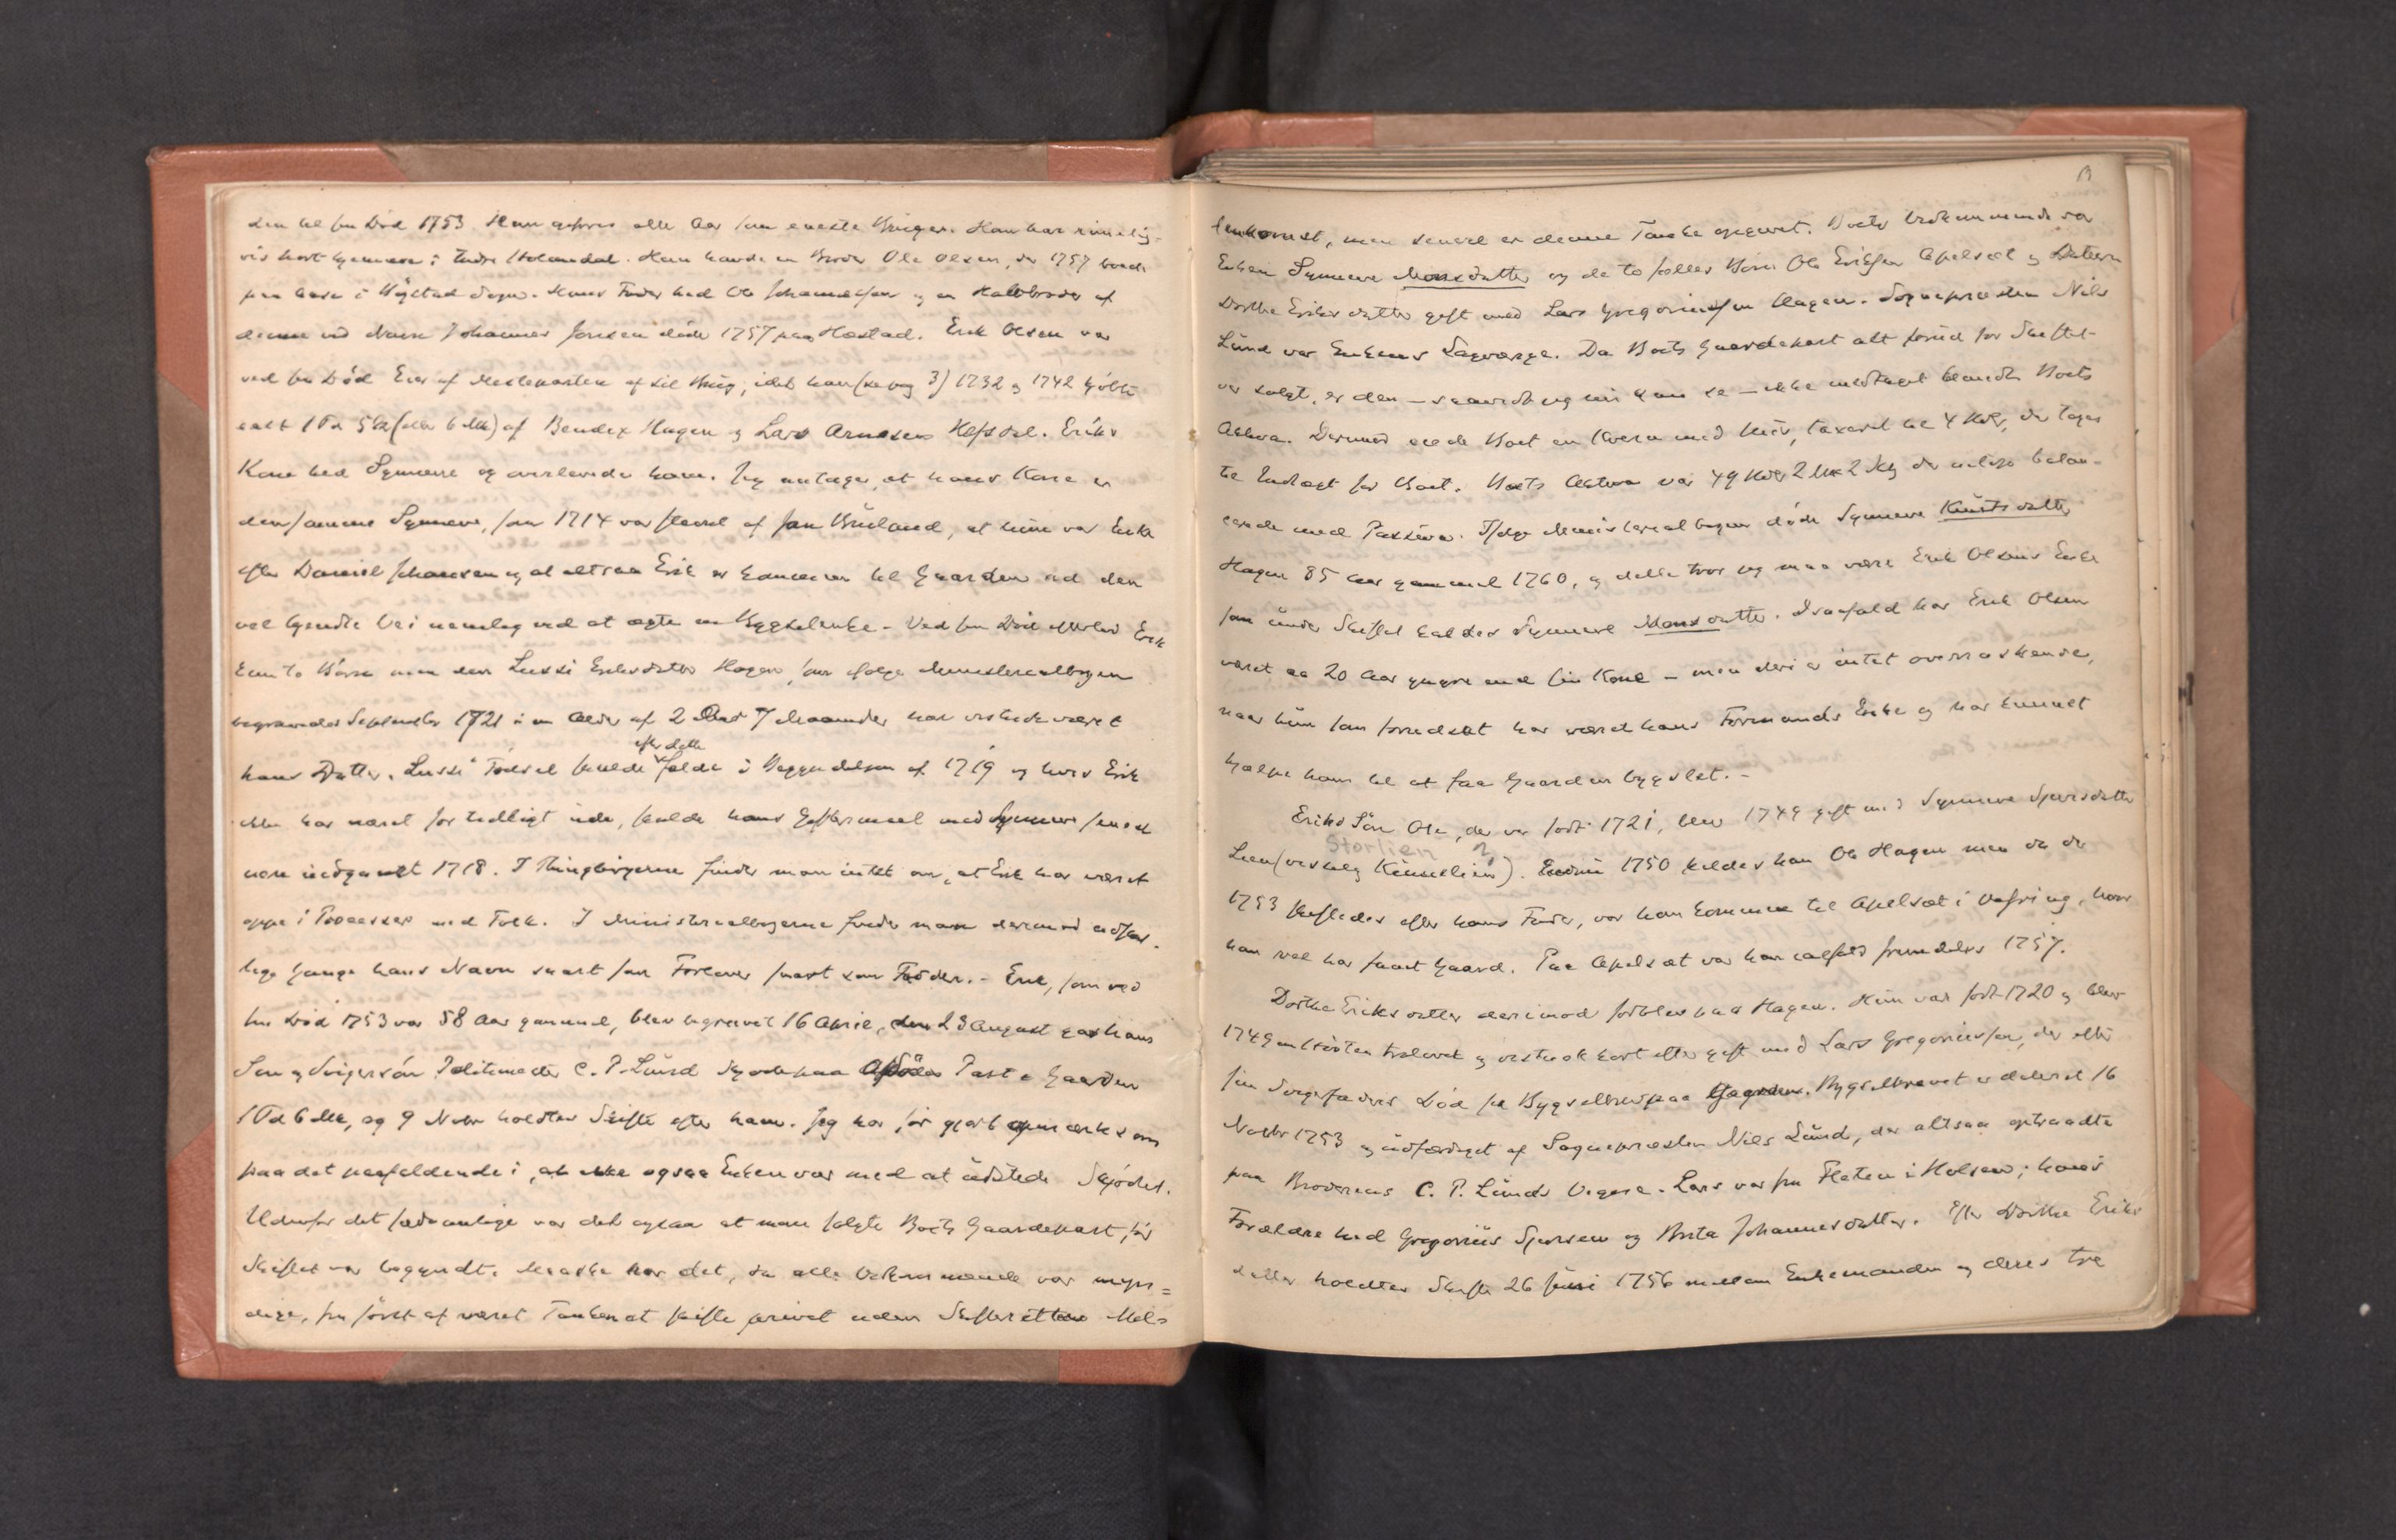 den til sin Død 1753. Han anføres alle Aar som eneste Bruger. Han har rimelig-
vis hørt hjemme i Indre Holsendal. Han havde en Broder Ole Olsen, der 1757 boede
paa Aase i Bygstad Sogn. Hans Fader hed Ole Johannessen og en Halvbroder af
denne ved Navn Johannes Jonsen døde 1757 paa Hæstad. Erik Olsen var
ved sin Død Eier af Mesteparten af sit Brug, idet han (se pag 3) 1732 og 1742 kjøbte
ialt 1 Pd (eller 6 Mk) af Bendix Hagen og Lars Arnesen Hafstad. Eriks
Kone hed Synneve og overlevede ham. Jeg antager, at hans Kone er
den samme Synneve, som 1714 var stevnet af Jon Bruland, at hun var Enke
efter Daniel Johansen og at altsaa Erik er kommen til Gaarden ad den
vel kjendte Vei nemlig ved at ægte en Bygselenke. Ved sin Død efterlod Erik
kun to Børn men den Lussi Eriksdatter Hagen, som ifølge Ministerialbogen
begravedes September 1721 i en Alder af 2 Aar 7 Maaneder har vistnok været
hans Datter. Lussi's Fødsel skulde falde i Begyndelsen af 1719 og hvis Erik
efter dette
ikke har været for tidligt ude, skulde hans Giftermaal med Synneve senest
være indgaaet 1718. I Thingbøgerne finder man intet om, at Erik har været
oppe i Processer med Folk. I Ministerialbøgerne finder man derimod adskil-
lige Gange hans Navn snart som Forlover snart som Fadder. - Erik, som ved
sin Død 1753 var 58 Aar gammel, blev begravet 16 April, den 23 August gav hans
Søn og Svigersøn Politimester C. P. Lund Skjøde paa Afdødes Part i Gaarden
1 Pd 6 Mk, og 9 Novbr holdtes Skifte efter ham. Jeg har før gjort opmærksom
paa det paafaldende i, at ikke ogsaa Enken var med at udstede Skjødet.
Udenfor det sædvanlige var det ogsaa at man solgte Boets Gaardepart før
Skiftet var begyndt. Maaske har det, da alle Vedkommende var myn=
dige, fra først af været Tanken at skifte privat uden Skifterettens Mel-
lemkomst, men senere er denne Tanke opgivet. Boets Vedkommende var
Enken Synneve Monsdatter og de to fælles Børn Ole Eriksen Apelsæt og Datteren
Dorthe Eriksdatter gift med Lars Gregoriussen Hagen. Sognepræsten Niels
Lund var Enkens Lagværge. Da Boets Gaardepart alt forud for Skiftet
var solgt, er den - saavidt jeg nu kan se - ikke medtaget blandt Boets
Aktiva. Dermed eiede Boet en Kvern med Hus, taxeret til 4 Rdl, der toges
til Indtægt for Boet. Boets Aktiva var 49 Rdl 2 Mk 2 Sk og der netop balan-
cerede med Passiva. Ifølge Ministerialbogen døde Synneve Knutsdatter
Hagen 85 Aar gammel 1760, og dette tror jeg maa være Erik Olsens Enke
som under Skiftet kaldes Synneve Monsdatter. Isaafald har Erik Olsen
været ca 20 Aar yngre end sin Kone - men deri er intet overraskende,
naar hun som forudsat har været hans Formands Enke og har kunnet
hjælpe ham til at faa Gaarden bygslet. -
Eriks Søn Ole, der var født 1721, blev 1749 gift med Synneve Sjursdatter
Storlien ?
Lien (veslelg Kunselien). Endnu 1750 kaldes han Ole Hagen men da der
1753 skiftedes efter hans Fader, var han kommen til Apelsæt i Vefring, hvor
han vel har faaet Gaard. Paa Apelsæt var han ialfald fremdeles 1757.
Dorthe Eriksdatter derimod forblev paa Hagen. Hun var født 1720 og blev
1749 om Høsten trolovet og vistnok kort efter gift med Lars Gregoriussen, der efter
sin Svigerfaders Død fik Bygselbrev paa Gaarden. Bygselbrevet er dateret 16
Novbr 1753 og udfærdiget af Sognepræsten Niels Lund, der altsaa optraadte
paa Broderens C. P. Lunds Vegne. Lars var fra Flaten i Holsen; hans
Forældre hed Gregorius Sjursen og Brita Johannesdatter. Efter Dorthe Eriks-
datter holdtes Skifte 26 Juni 1756 mellem Enkemanden og deres tre